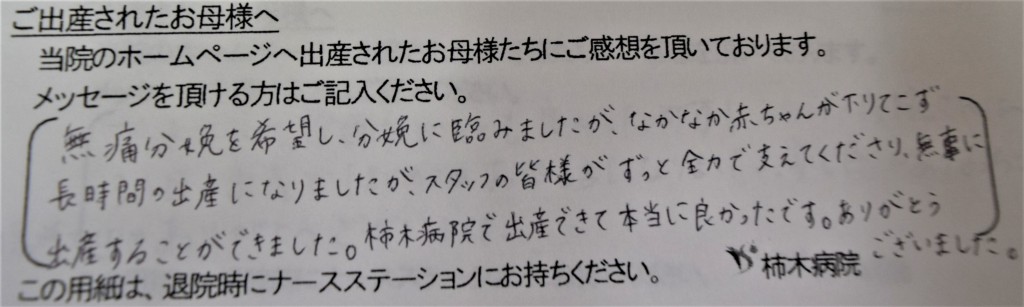 ご出産されたお母様へ
当院のホームページへ出産されたお母様たちにご感想を頂いております。
メッセージを頂ける方はご記入ください。
無痛分娩を希望し、分娩に臨みましたが、なかなか赤ちゃんが下りてこず
長時間の出産になりましたが、スタッフの皆様がずっと全力で支えてくださり、無事に
出産することができました。柿木病院で出産できて本当に良かったです。ありがとう
ございました。
この用細は、退院時にナースステーションにお持ちください。
柿木病院